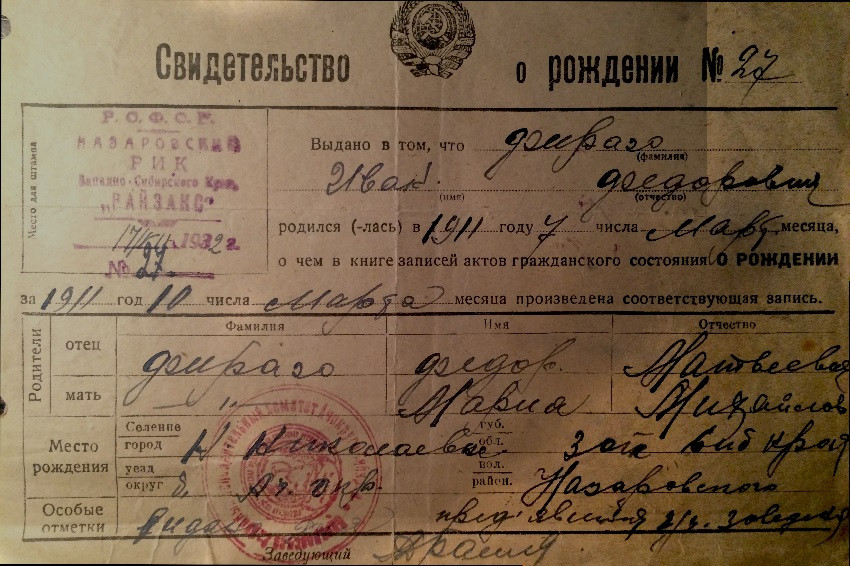 Свидетельство о рождении № 27
Место для штампа
Р.С.Ф.С.Р.
НАЗАРОВСКИЙ
РИК
Западно-Сибирского Края
„РАЙЗАКС"
17/VII 1932 г.
№ 27
Выдано в том, что Фираго
(фамилия)
Иван Федорович
(имя) (отчество)
родился (-лась) в 1911 году 7 числа Март месяца,
о чем в книге записей актов гражданского состояния О РОЖДЕНИИ
за 1911 год 10 числа Марта месяца произведена соответствующая запись.
Родители
Фамилия Имя Отчество
отец Фираго Федор. Матвеевич
мать —„— Мария Михайлов
Место рождения
Селение город Н Николаевка губ. обл. Зап Сиб края
уезд округ б. Ач. окр. вол. район. Назаровского
Особые отметки Выдан
Заведующий